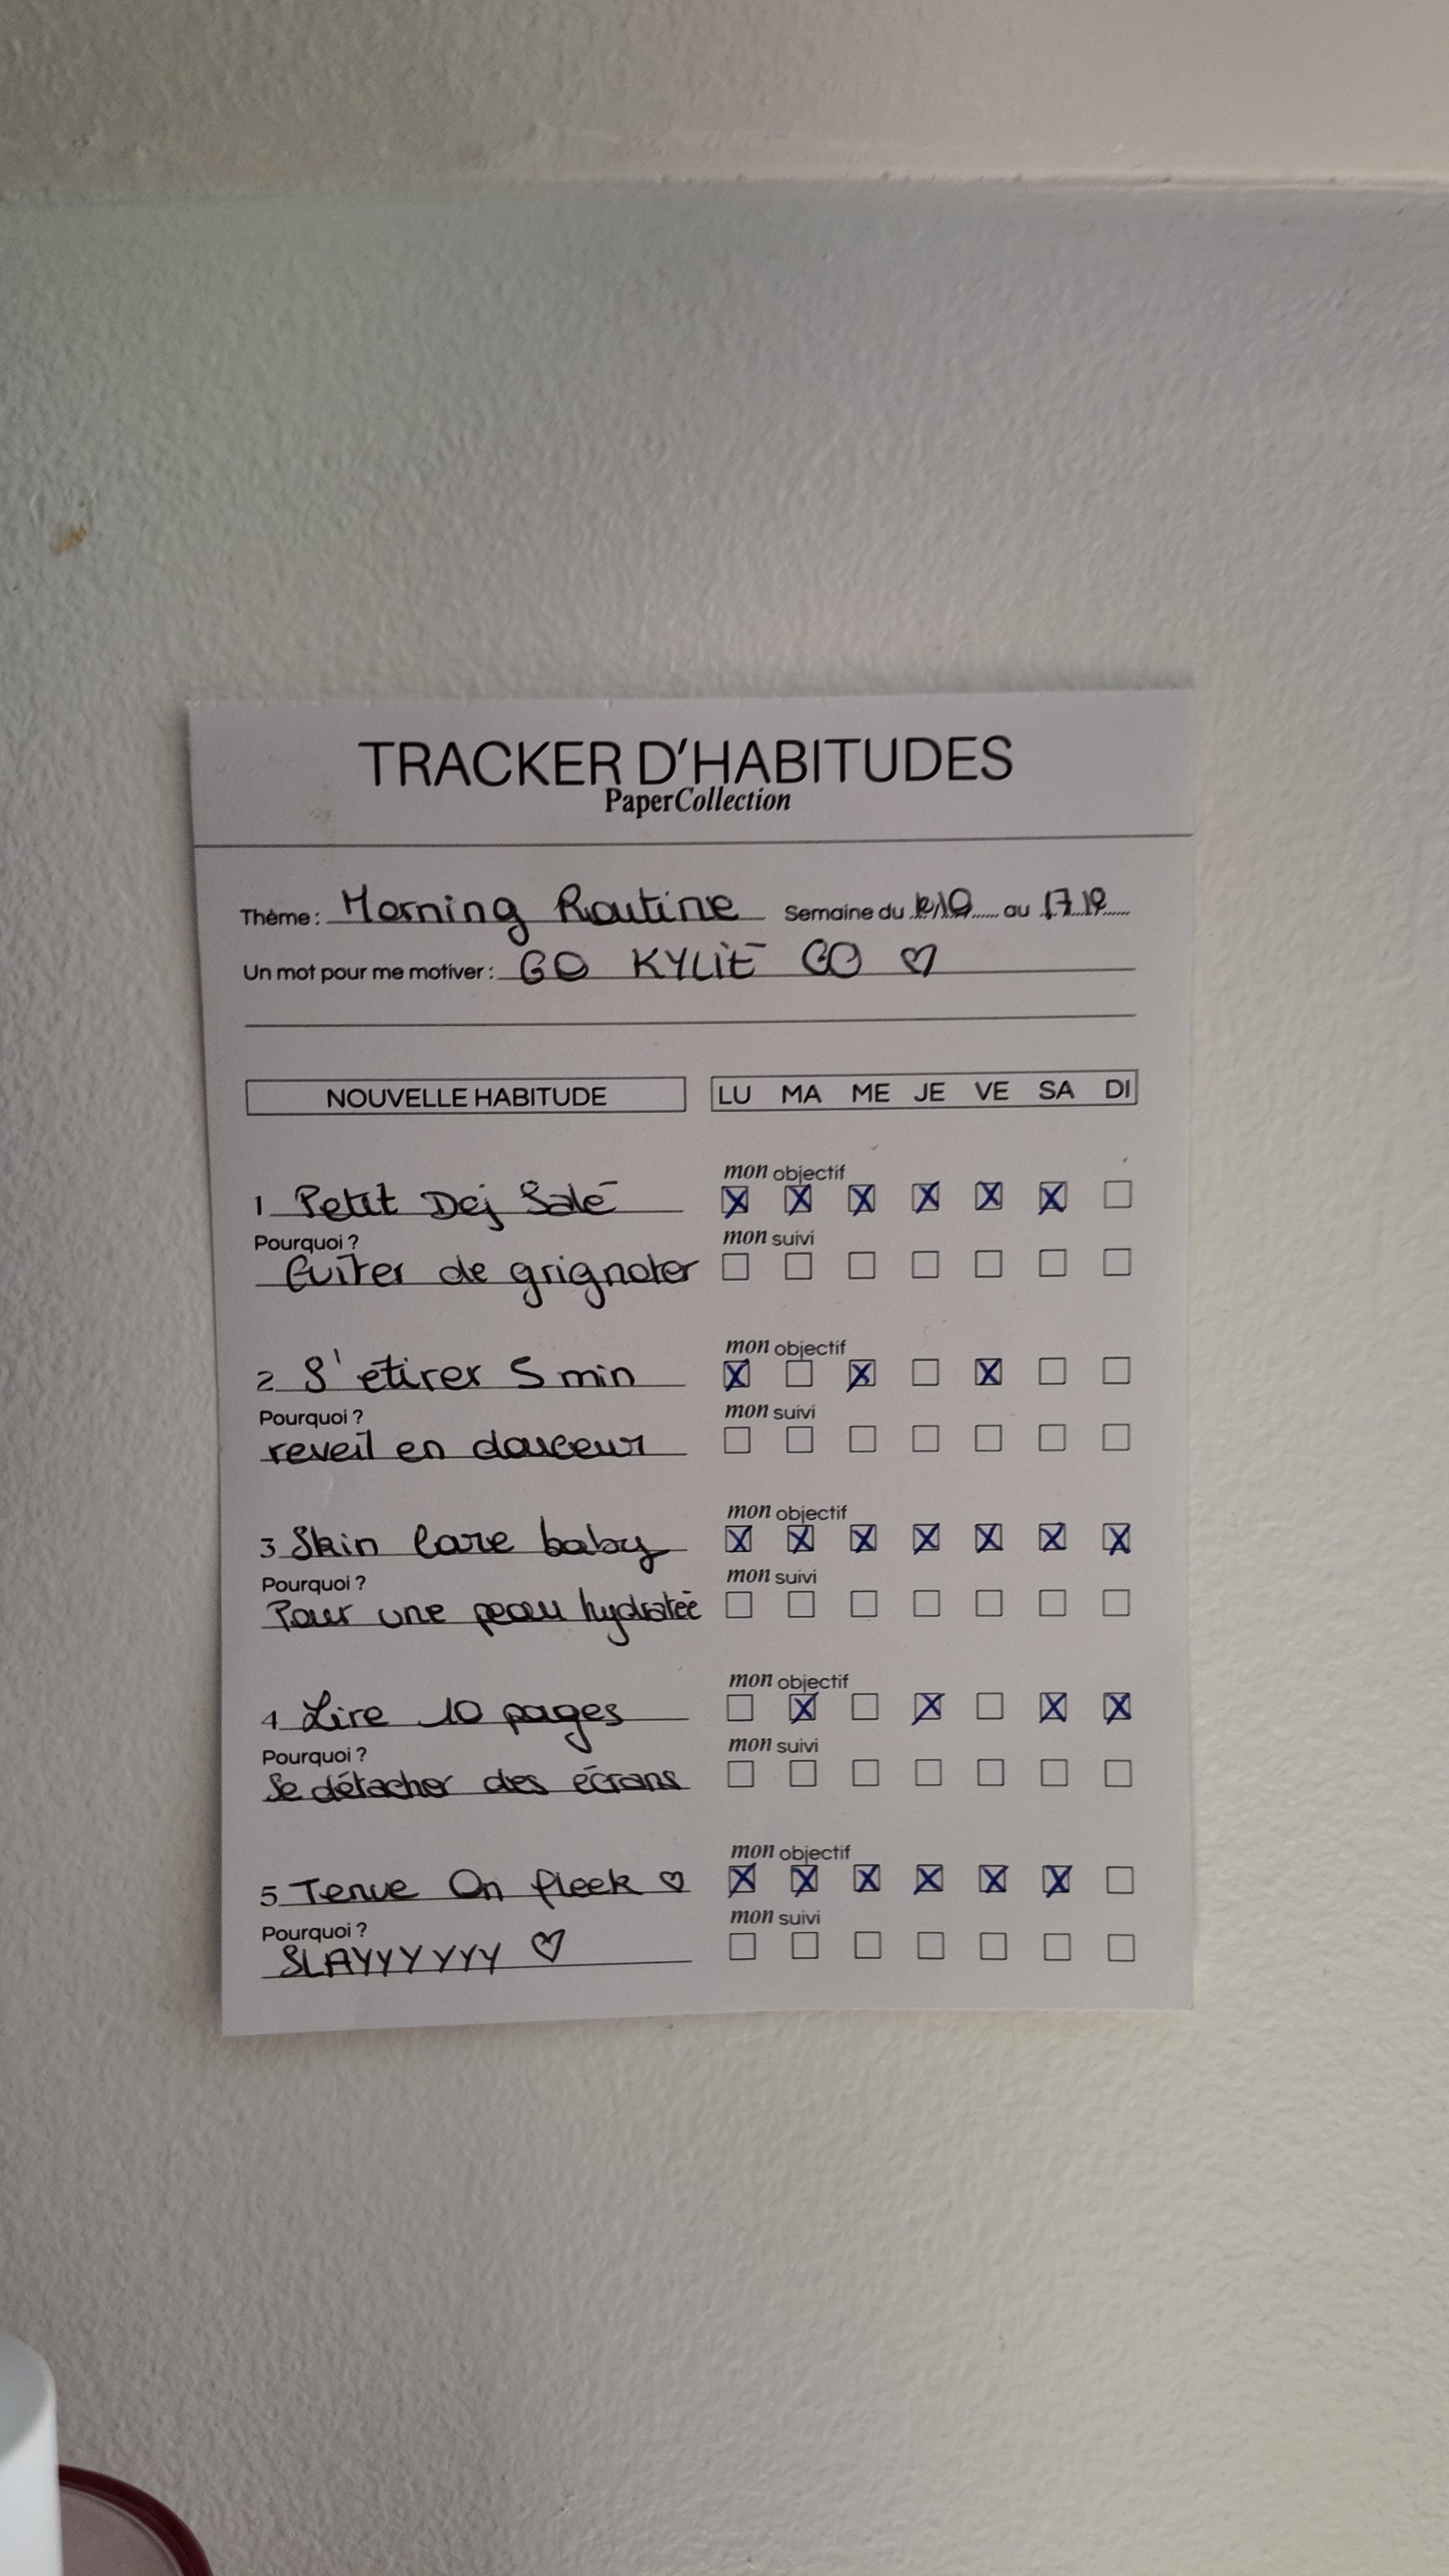 TRACKER D'HABITUDES
PaperCollection
Thème : Morning Routine Semaine du au
Un mot pour me motiver : GO KYLIE GO ♡
NOUVELLE HABITUDE LU MA ME JE VE SA DI
mon objectif
1 Petit Dej Salé
Pourquoi ? mon suivi
Eviter de grignoter
mon objectif
2 S'étirer 5 min
Pourquoi ? mon suivi
reveil en douceur
mon objectif
3 Skin Care baby
Pourquoi ? mon suivi
Pour une peau hydratée
mon objectif
4 Lire 10 pages
Pourquoi ? mon suivi
Se détacher des écrans
mon objectif
5 Tenue On fleek ♡
Pourquoi ? mon suivi
SLAYYYYYY ♡